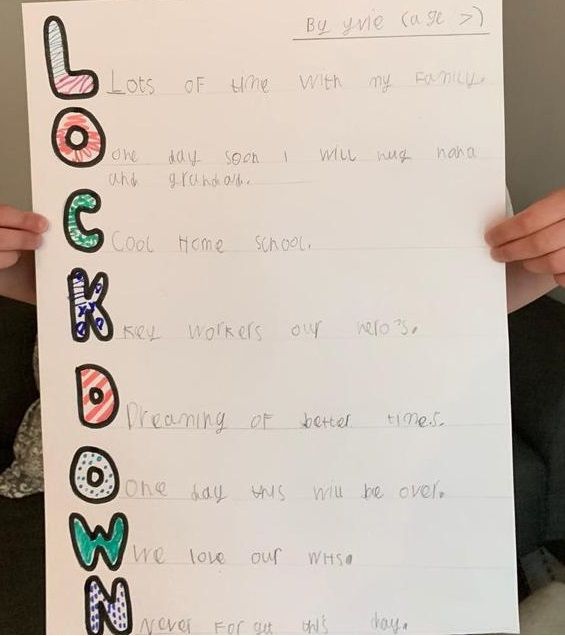 By yvie (age 7)
L Lots of time with my Family.
O one day soon i will hug nana
and grandad.
C Cool Home school.
K Key workers our hero's.
D Dreaming of better times.
O One day this will be over.
W We love our NHS.
N Never Forget this day.